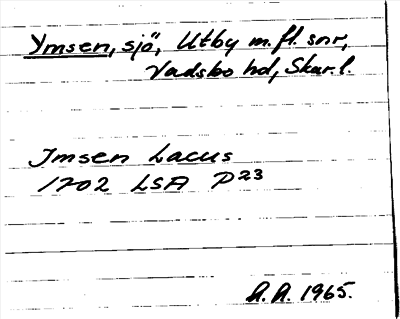 Ymsen, sjö, Utby m.fl. snr,
Vadsbo hd, Skar.l.
Imsen Lacus
1702 LSA P23
A.A. 1965.